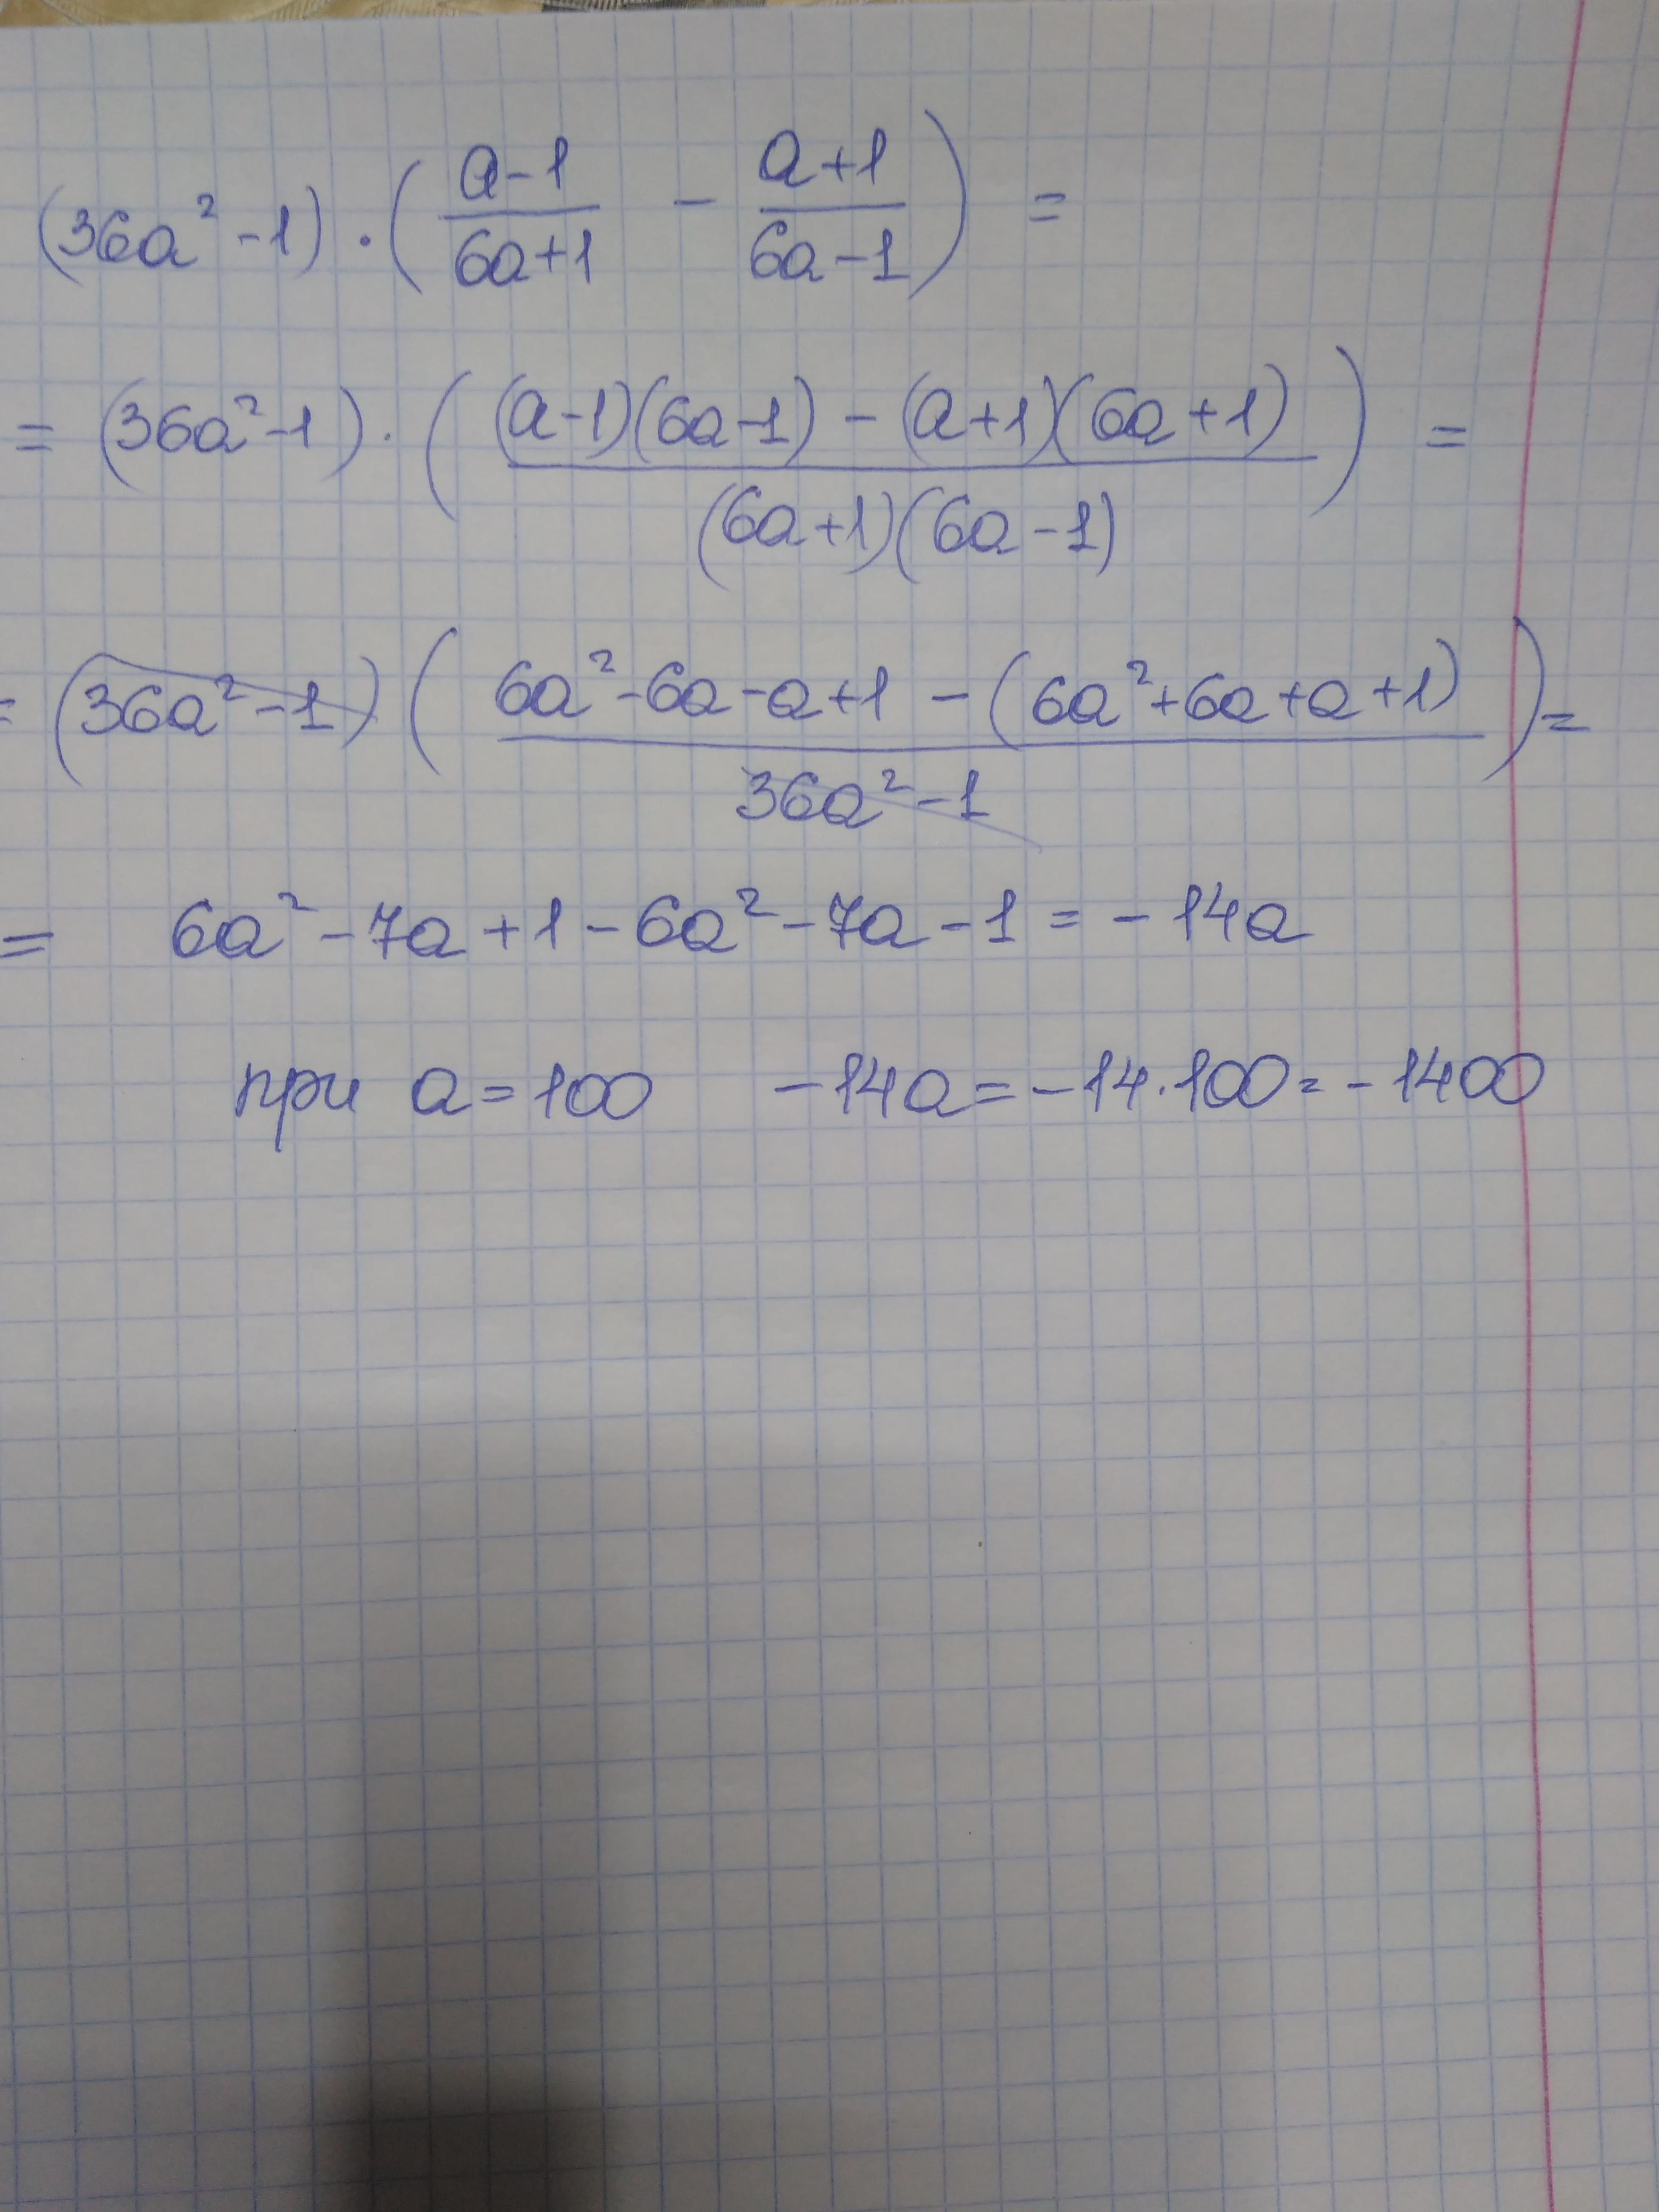 (36a² - 1) · ( (a-1)/(6a+1) - (a+1)/(6a-1) ) =
= (36a² - 1) · ( ((a-1)(6a-1) - (a+1)(6a+1)) / ((6a+1)(6a-1)) ) =
= (36a² - 1) ( (6a² - 6a - a + 1 - (6a² + 6a + a + 1)) / (36a² - 1) ) =
= 6a² - 7a + 1 - 6a² - 7a - 1 = - 14a
при a = 100 - 14a = - 14 · 100 = - 1400